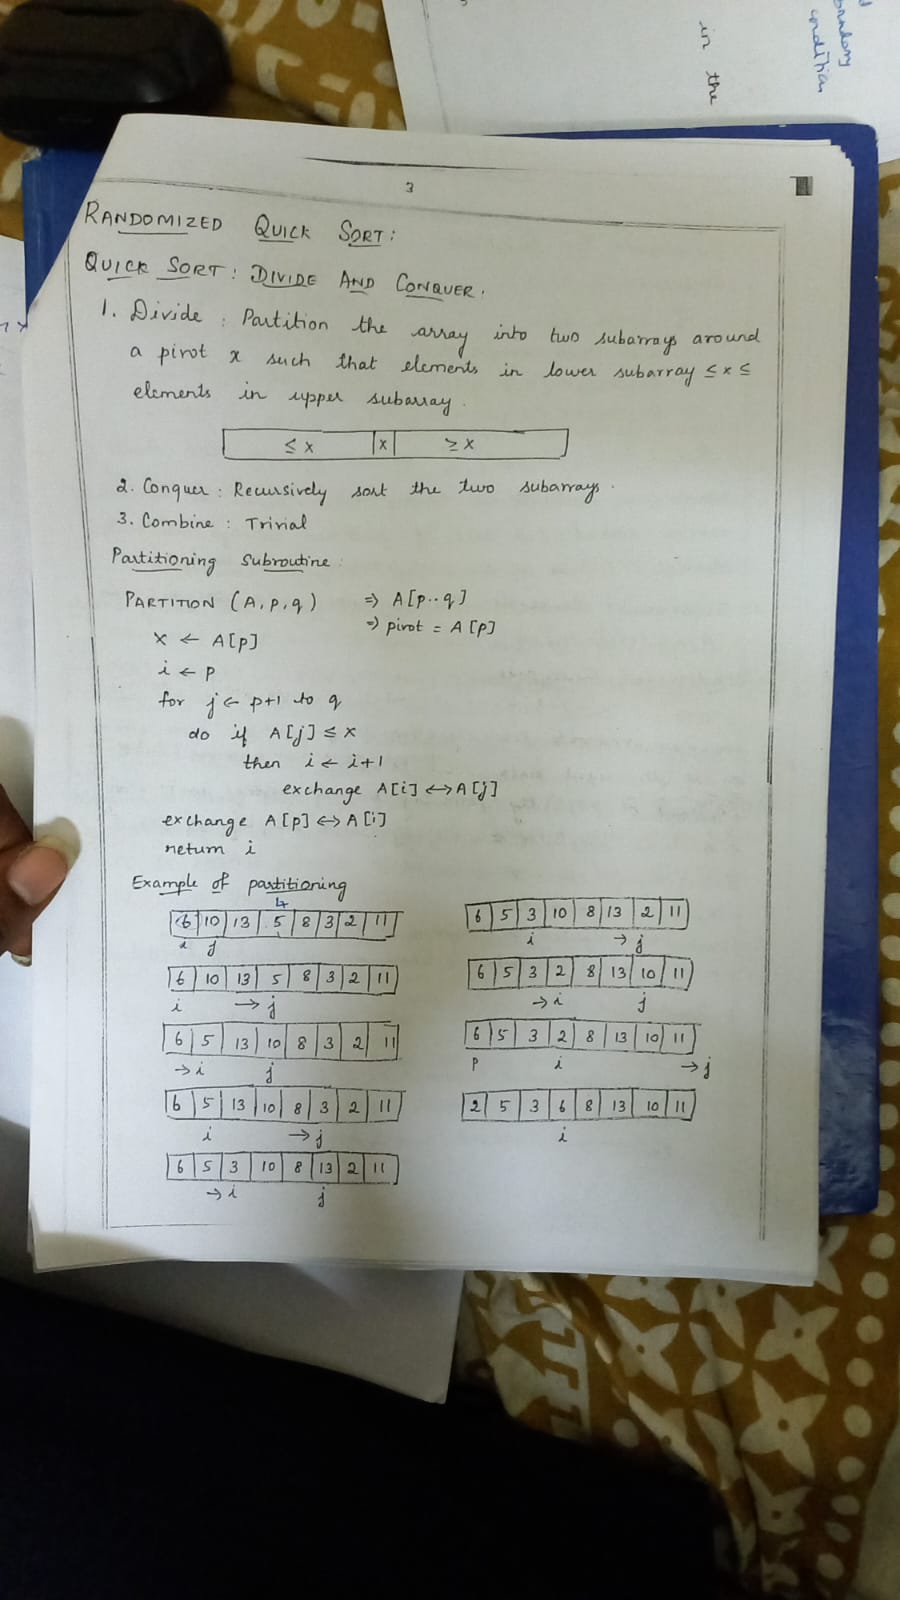 boundary
condition
in the
3
RANDOMIZED QUICK SORT:
QUICK SORT: DIVIDE AND CONQUER.
1. Divide: Partition the array into two subarrays around
a pivot x such that elements in lower subarray ≤ x ≤
elements in upper subarray.
≤ x | x | ≥ x
2. Conquer: Recursively sort the two subarrays.
3. Combine: Trivial
Partitioning Subroutine:
PARTITION (A, p, q) ⇒ A[p..q]
⇒ pivot = A[p]
x ← A[p]
i ← p
for j ← p+1 to q
do if A[j] ≤ x
then i ← i+1
exchange A[i] ↔ A[j]
exchange A[p] ↔ A[i]
return i
Example of partitioning
4
6 10 13 5 8 3 2 11
i j
6 10 13 5 8 3 2 11
i → j
6 5 13 10 8 3 2 11
→ i j
6 5 13 10 8 3 2 11
i → j
6 5 3 10 8 13 2 11
→ i j
6 5 3 10 8 13 2 11
i → j
6 5 3 2 8 13 10 11
→ i j
6 5 3 2 8 13 10 11
p i → j
2 5 3 6 8 13 10 11
i